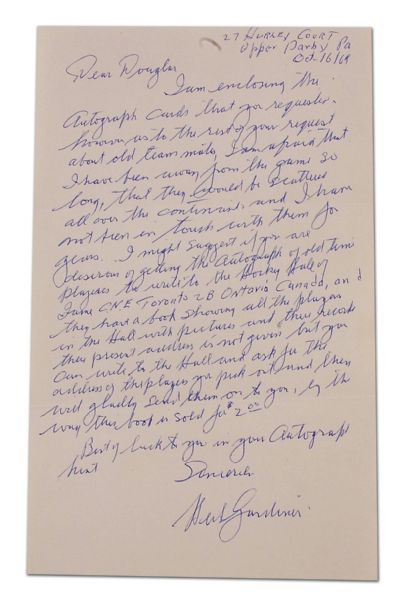 27 Hurley Court
Upper Darby Pa
Oct-16/69
Dear Douglas
I am enclosing the
Autograph Cards that you requested.
however as to the rest of your request
about old team mates, I am afraid that
I have been away from the game so
long, that they would be scattered
all over the continent, and I have
not been in touch with them for
years. I might suggest if you are
desirous of getting the Autograph of old time
Players to write to the Hockey Hall of
Fame C.N.E Toronto 2B Ontario Canada, and
they have a book showing all the players
in the Hall with pictures and their records
their present address is not given but you
can write to the Hall and ask for the
address of the players you pick out and they
will gladly send them on to you, by the
way this book is sold for $2.00
Best of luck to you in your Autograph
hunt
Sincerely
Herb Gardiner.